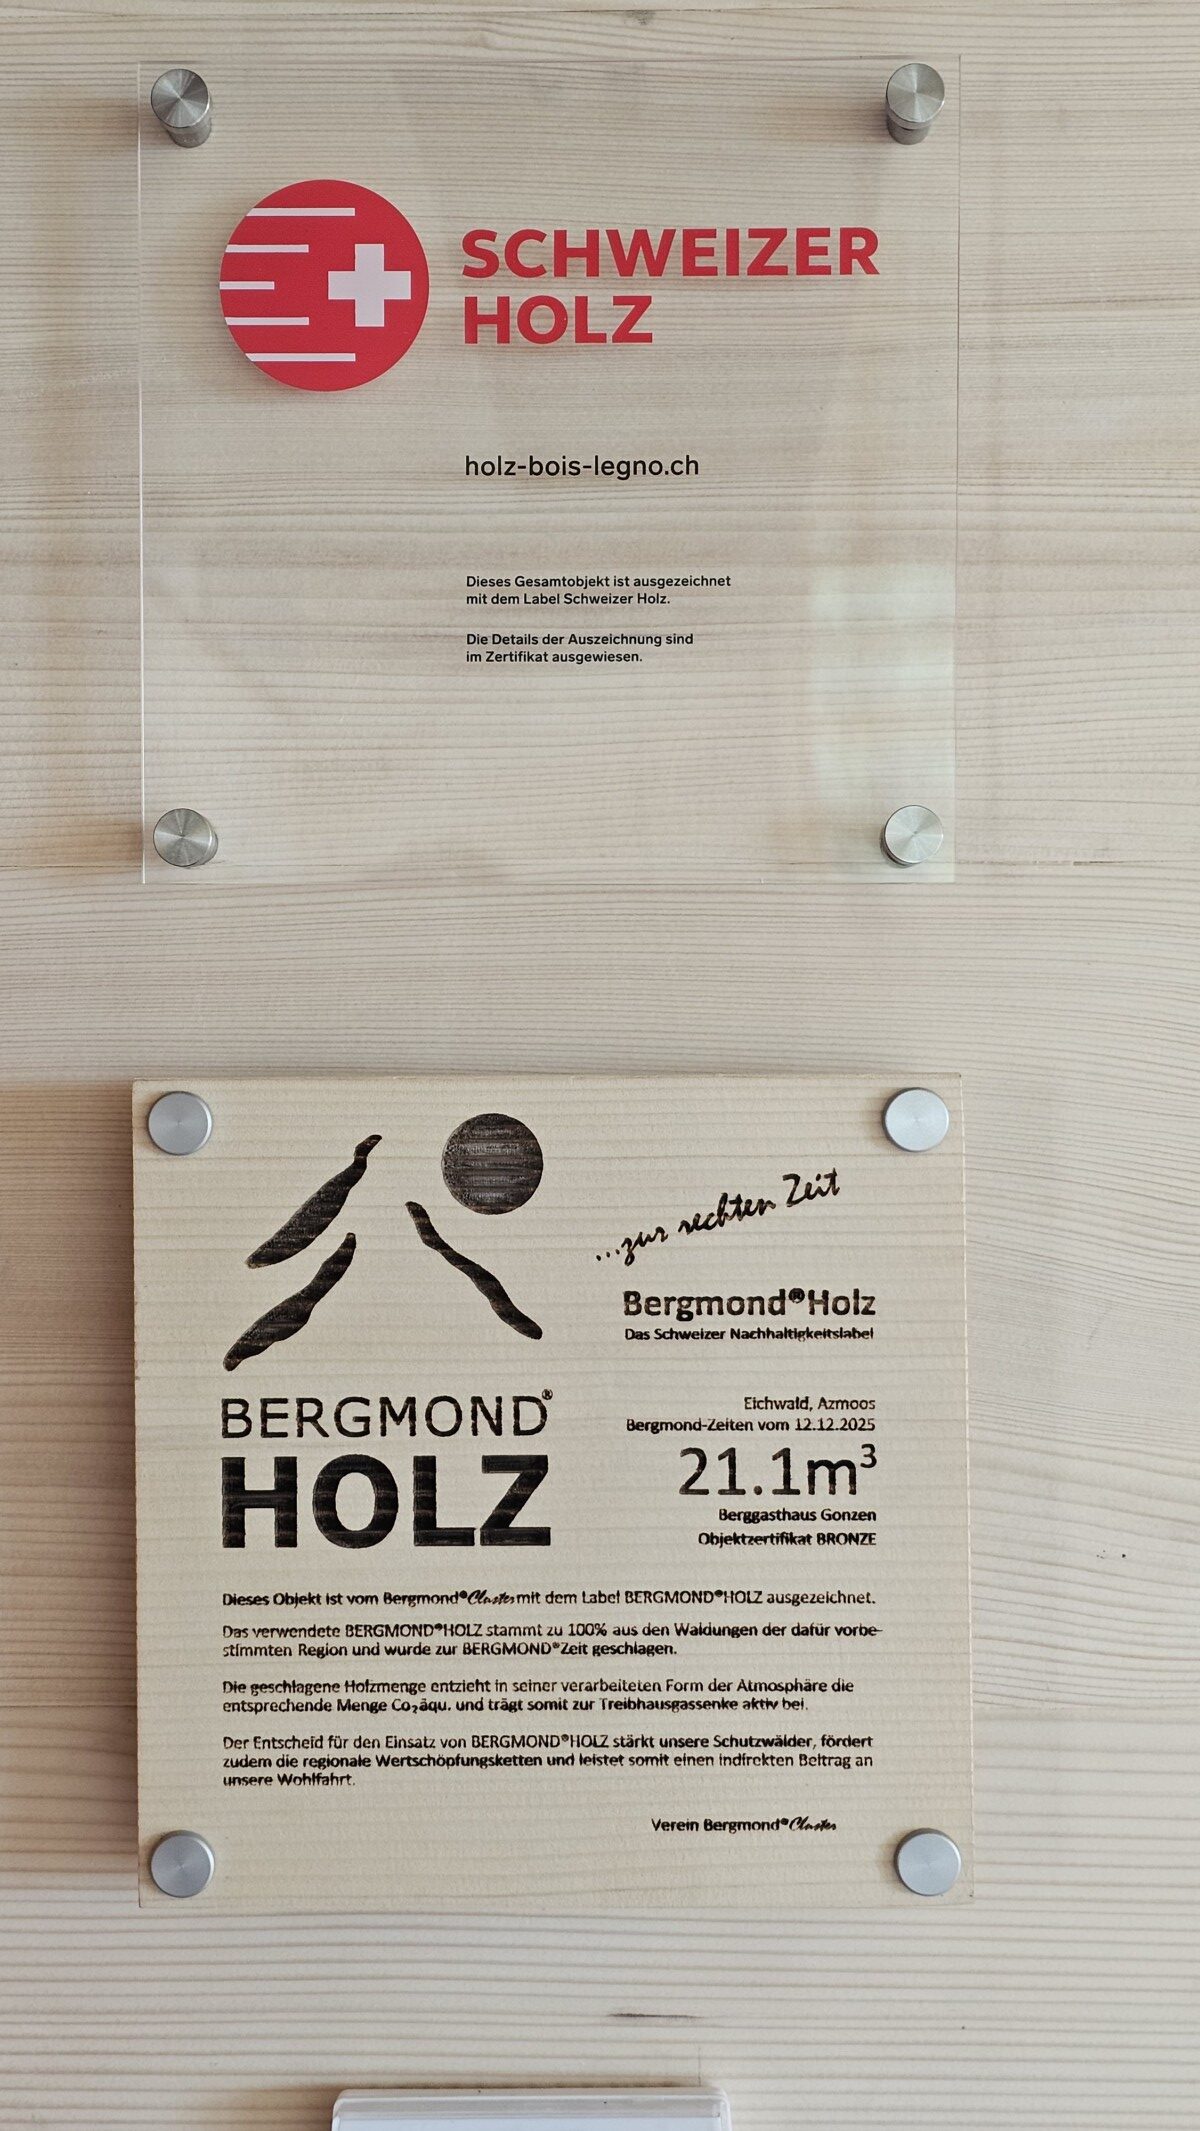 SCHWEIZER
HOLZ
holz-bois-legno.ch
Dieses Gesamtobjekt ist ausgezeichnet
mit dem Label Schweizer Holz.
Die Details der Auszeichnung sind
im Zertifikat ausgewiesen.
...zur rechten Zeit
Bergmond®Holz
Das Schweizer Nachhaltigkeitslabel
BERGMOND®
HOLZ
Eichwald, Azmoos
Bergmond-Zeiten vom 12.12.2025
21.1m³
Berggasthaus Gonzen
Objektzertifikat BRONZE
Dieses Objekt ist vom Bergmond®Cluster mit dem Label BERGMOND®HOLZ ausgezeichnet.
Das verwendete BERGMOND®HOLZ stammt zu 100% aus den Waldungen der dafür vorbe-
stimmten Region und wurde zur BERGMOND®Zeit geschlagen.
Die geschlagene Holzmenge entzieht in seiner verarbeiteten Form der Atmosphäre die
entsprechende Menge Co₂äqu. und trägt somit zur Treibhausgassenke aktiv bei.
Der Entscheid für den Einsatz von BERGMOND®HOLZ stärkt unsere Schutzwälder, fördert
zudem die regionale Wertschöpfungsketten und leistet somit einen indirekten Beitrag an
unsere Wohlfahrt.
Verein Bergmond®Cluster